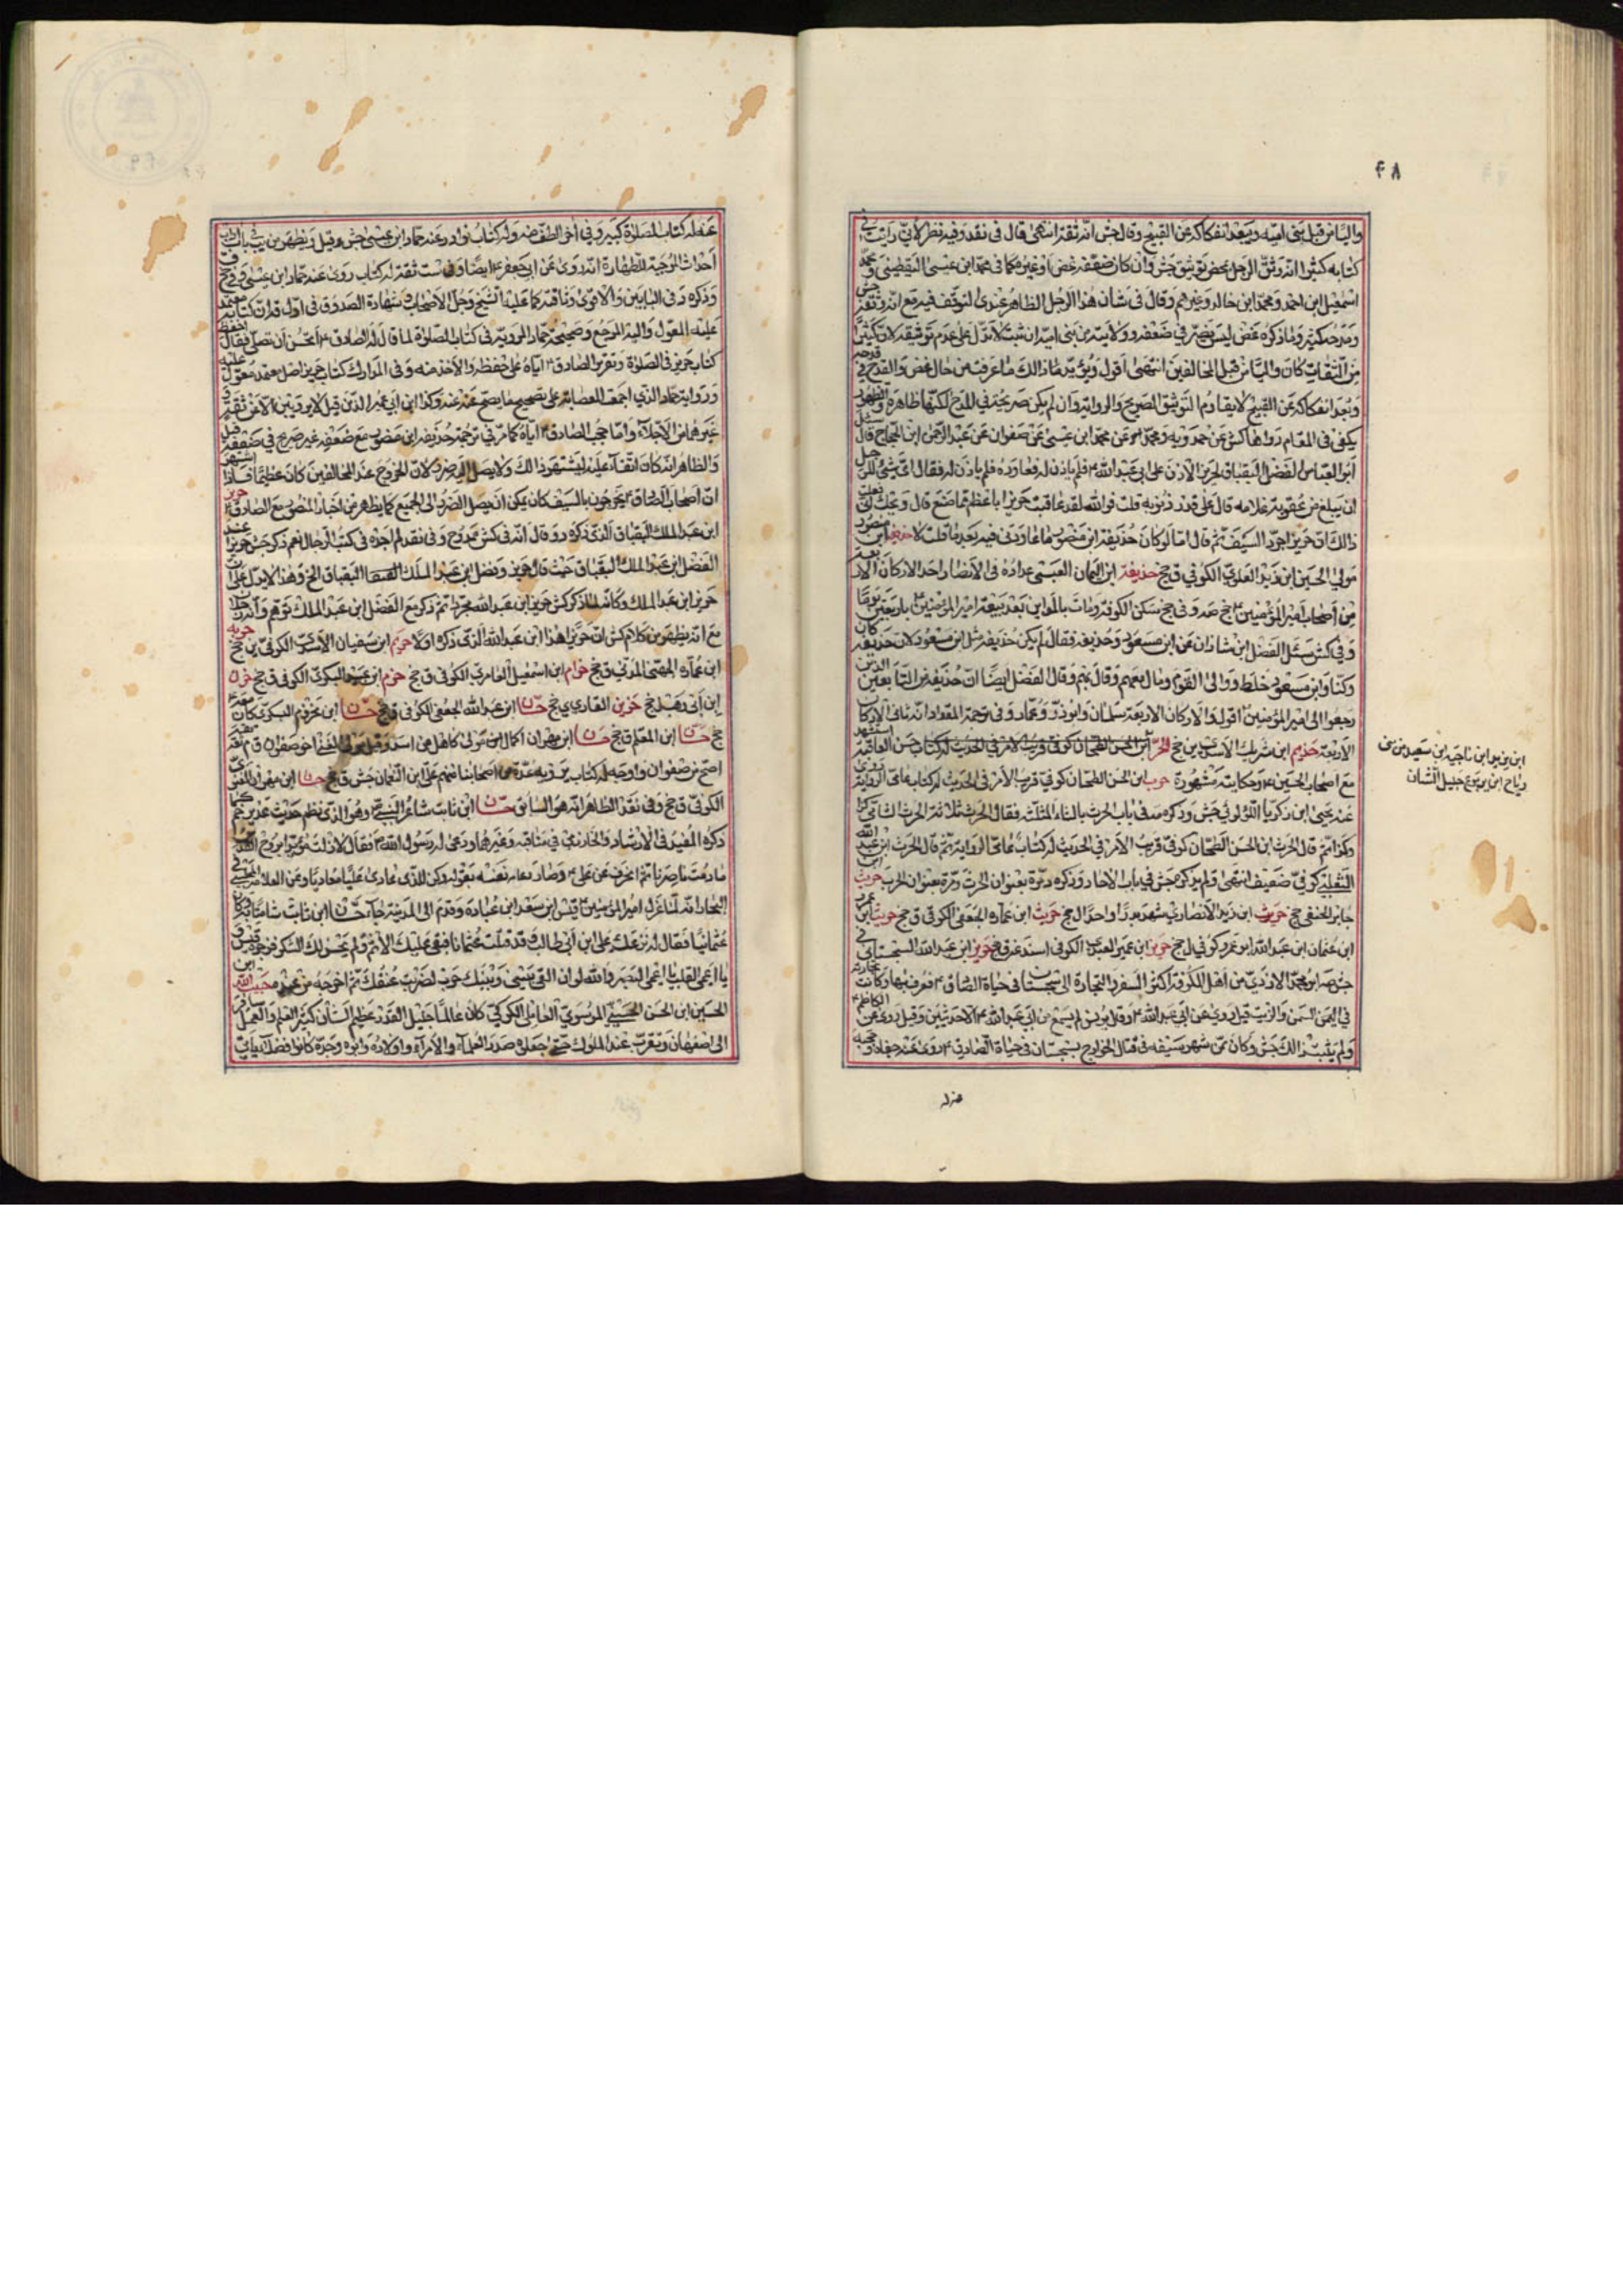 ۴۸
واليا من قبل بنى اميه ويبعد انفكاكه عن القبيح وقال جش انه ثقة انتهى قال فى نقد وفيه نظر لانى رايت فى
كتابه كثيرا انه وثق الرجل بمحض توثيق جش وان كان ضعفه غض او غيره كما فى محمد ابن عيسى اليقطينى و محمد
اسمعيل ابن احمد ومحمد ابن خالد وغيرهم وقال فى شان هذا الرجل الظاهر عندى التوقف فيه مع انه وثقه جش
ومدحه كثير وما ذكره غض ليس بصريح فى ضعفه وولايته من بنى اميه ان ثبت لا تدل على عدم توثيقه لان كثيرا
من الثقات كان واليا من قبل المخالفين انتهى اقول ويؤيد ما ذالك ما عرفته من حال غض والقدح فى قدحه
وبعد انفكاكه عن القبيح لا يقاوم التوثيق الصريح والرواية وان لم يكن صريحة فى المدح لكنها ظاهرة والظهور
يكفى فى المقام رواها كش عن حمدويه ومحمد عن محمد ابن عيسى عن صفوان عن عبد الرحمن ابن الحجاج قال سئل
ابو العباس الفضل البقباق لحريز الاذن على ابى عبد الله ع فلم ياذن له فعاوده فلم ياذن له فقال اى شئ للرجل
ان يبلغ من عقوبة غلامه قال على قدر ذنوبه قلت فوالله لقد عاقبت حريزا باعظم مما صنع قال ويحك انى فعلت
ذالك ان حريزا جرد السيف ثم قال اما لو كان حذيفة ابن منصور ما عاودنى فيه بعد ما قلت لا حذيفه ابن منصور
مولى الحسين ابن زيد العلوى الكوفى ق جخ حذيفة ابن اليمان العبسى عداده فى الانصار احد الاركان الاربعة
من اصحاب امير المؤمنين ع جخ صه وفى جخ سكن الكوفة ومات بالمداين بعد بيعة امير المؤمنين ع باربعين يوما
وفى كش سئل الفضل ابن شاذان عن ابن مسعود وحذيفه فقال لم يكن حذيفه مثل ابن مسعود لان حذيفه كان
وكنا وابن مسعود خلط ووالى القوم ومال معهم وقال بهم وقال الفضل ايضا ان حذيفه من التابعين الذين
رجعوا الى امير المؤمنين اقول والاركان الاربعة سلمان وابوذر وعمار وفى ترجمة المقداد انه ثانى الاركان
الاربعة حذيم ابن شريك الاسدى ين جخ الحر ابن الحسن الطحان كوفى قريب الامر فى الحديث له كتاب حسن العاقبة استشهد
مع اصحاب الحسين ع وحكايته مشهورة حرب ابن الحسن الطحان كوفى قريب الامر فى الحديث له كتاب عامى الرواية روى
عنه يحيى ابن زكريا اللؤلؤى جش وذكره صه فى باب حرث بالثاء المثلثة فقال الحرث ثلاثة الحرث الثانى
وكذا ثم قال الحرث ابن الحسن الطحان كوفى قريب الامر فى الحديث له كتاب عامى الرواية ثم قال الحرث ابن عبد الله
التغلبى كوفى ضعيف انتهى ولم يذكره جش فى باب الاحاد وذكره مرة بعنوان الحرث ومرة بعنوان الحرب حريث ابن
جابر الحنفى جخ حريث ابن زيد الانصارى شهد بدرا واحدا ل جخ حريث ابن عماره الجعفى الكوفى ق جخ حريث ابن عمرو
ابن عثمان ابن عبد الله ابن عمرو كوفى ل جخ حريز ابن عمير العبدى الكوفى اسند عنه ق جخ حريز ابن عبد الله السجستانى
جش صه ابو محمد الازدى من اهل الكوفه اكثر السفر والتجارة الى سجستان فى حياة الصادق ع فعرف بها وكانت تجارته
فى السمن والزيت قيل روى عن ابى عبد الله ع وقال يونس لم يسمع من ابى عبد الله ع الا حديثين وقيل روى عن الكاظم ع
ولم يثبت ذالك جش وكان ممن شهر سيفه فى قتال الخوارج بسجستان فى حياة الصادق ع روى عنه جفاه وحجبه
عنه له
رياح ابن يربوع جليل الشان
عنه له كتاب الصلوة كبير وفى اخر الطف منه وله كتاب نوادر عنه حماد ابن عيسى جش وقيل ويظهر من يب باب
احداث الموجبة للطهارة انه روى عن ابى جعفر ع ايضا وفى ست ثقة له كتاب روى عنه حماد ابن عيسى وفى جخ ق
وذكره د فى البابين والاقوى وثاقته كما عليه الشيخ وجل الاصحاب بشهادة الصدوق فى اول قه ان كتابه معتمد
عليه المعول واليه المرجع وصحيحة حماد المروية فى كتاب الصلوة لما قال له الصادق ع اتحسن ان تصلى فقال احفظ
كتاب حريز فى الصلوة وتقرير الصادق ع اياه على حفظه والاخذ منه وفى المدارك كتاب حريز اصل معتمد معول عليه
ورواية حماد الذى اجمعت العصابة على تصحيح ما يصح عنه عنه وكذا ابن ابى عمير الذين قيل لا يرويان الا عن ثقة و
غيرهما من الاجلاء واما حجب الصادق ع اياه كما مر فى ترجمة حذيفه ابن منصور مع ضعفه غير صريح فى ضعفه قيل
والظاهر انه كان اتقاء عليه ليشتهر ذالك ولا يصل اليه ضرر لان الخروج عند المخالفين كان عظيما فاذا اشتهر
ان اصحاب الصادق ع يخرجون بالسيف كان يمكن ان يصل الضرر الى الجميع كما يظهر من اخبار المنصور مع الصادق ع حريز
ابن عبد الملك البقباق الذى ذكره د وقال انه فى كش ممدوح وفى نقد لم اجده فى كتب الرجال نعم ذكر جش حريزا عند
الفضل ابن عبد الملك البقباق حيث قال حريز وفضل ابن عبد الملك البقباق الخ وهذا لا يدل على ان
حريز ابن عبد الملك وكانه لما ذكر كش حريز ابن عبد الله مجردا ثم ذكر مع الفضل ابن عبد الملك توهم وانه رجلان
مع انه يظهر من كلام كش ان حريزا هذا ابن عبد الله الذى ذكره اولا حريم ابن سفيان الاسدى الكوفى ين جخ حزابة
ابن عماره الضبى المدنى ق جخ حزام ابن اسمعيل العامرى الكوفى ق جخ حزم ابن عبيد البكرى الكوفى ق جخ حزن
ابن ابى وهب ل جخ حزين القارى ى جخ حسان ابن عبد الله الجعفى الكوفى ق جخ حسان ابن مخزوم البكرى كان معه
جخ حسان ابن المعلم ق جخ حسان ابن مهران الجمال ابن مولى كاهل من اسد وقيل مولى لغنى اخو صفوان ق م ثقة
اصح من صفوان واوجه له كتاب يرويه عدة من اصحابنا منهم على ابن النعمان جش ق جخ حسان ابن مهران الغنوى
الكوفى ق جخ وفى نقد الظاهر انه هو السابق حسان ابن ثابت شاعر النبى ص وهو الذى نظم حديث غدير خم كما
ذكره المفيد فى الارشاد والخوارزمى فى مناقبه وغيرهما ودعى له رسول الله ص فقال لا زلت مؤيدا بروح القدس
ما دمت ناصرنا ثم انحرف عن على ع وصار يدعو نفسه بقوله وكن للذى عادى عليا معاديا وعن العلامة المجلسى فى
البحار انه لما عزل امير المؤمنين ع قيس ابن سعد ابن عباده وقدم الى المدينة جاء حسان ابن ثابت شامتا به وكان
عثمانيا فقال له نزعك على ابن ابى طالب وقد قتلت عثمانا فبقى عليك الاثم ولم يحسن لك الشكر فزجره قيس و
يا اعمى القلب يا اعمى البصر والله لولا ان القى بينى وبينك حربا لضربت عنقك ثم اخرجه من عنده حبيب الله ابن
الحسين ابن الحسن الحسينى الموسوى العاملى الكركى كان عالما جليل القدر عظيم الشان كثير العلم والعمل سافر
الى اصفهان وتقرب عند الملوك حتى جعلوه صدر العلماء والامراء واولاده وابوه وجده كانوا فضلاء ياتى